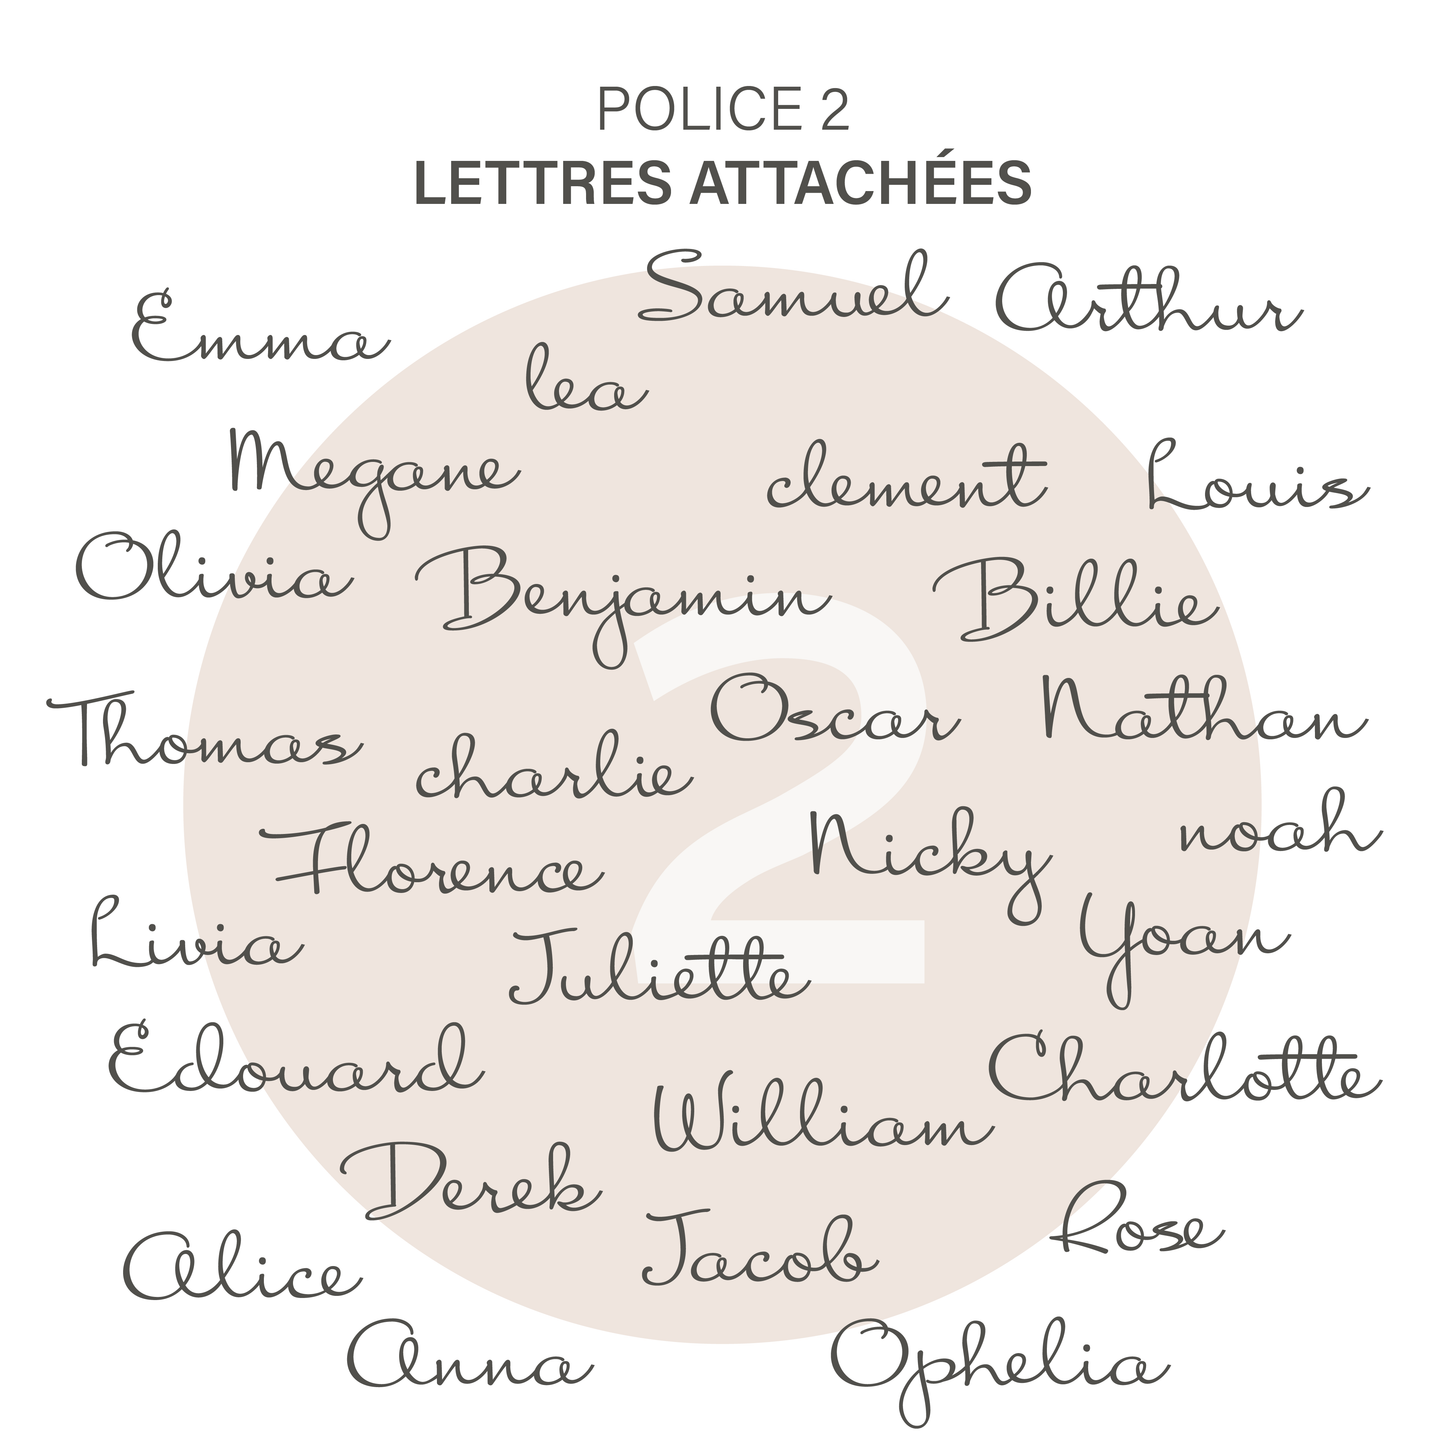 POLICE 2
LETTRES ATTACHÉES
Samuel Arthur
Emma
lea
Megane clement Louis
Olivia Benjamin Billie
2
Thomas charlie Oscar Nathan
Florence Nicky noah
Livia Juliette Yoan
Edouard William Charlotte
Derek
Alice Jacob Rose
Anna Ophelia